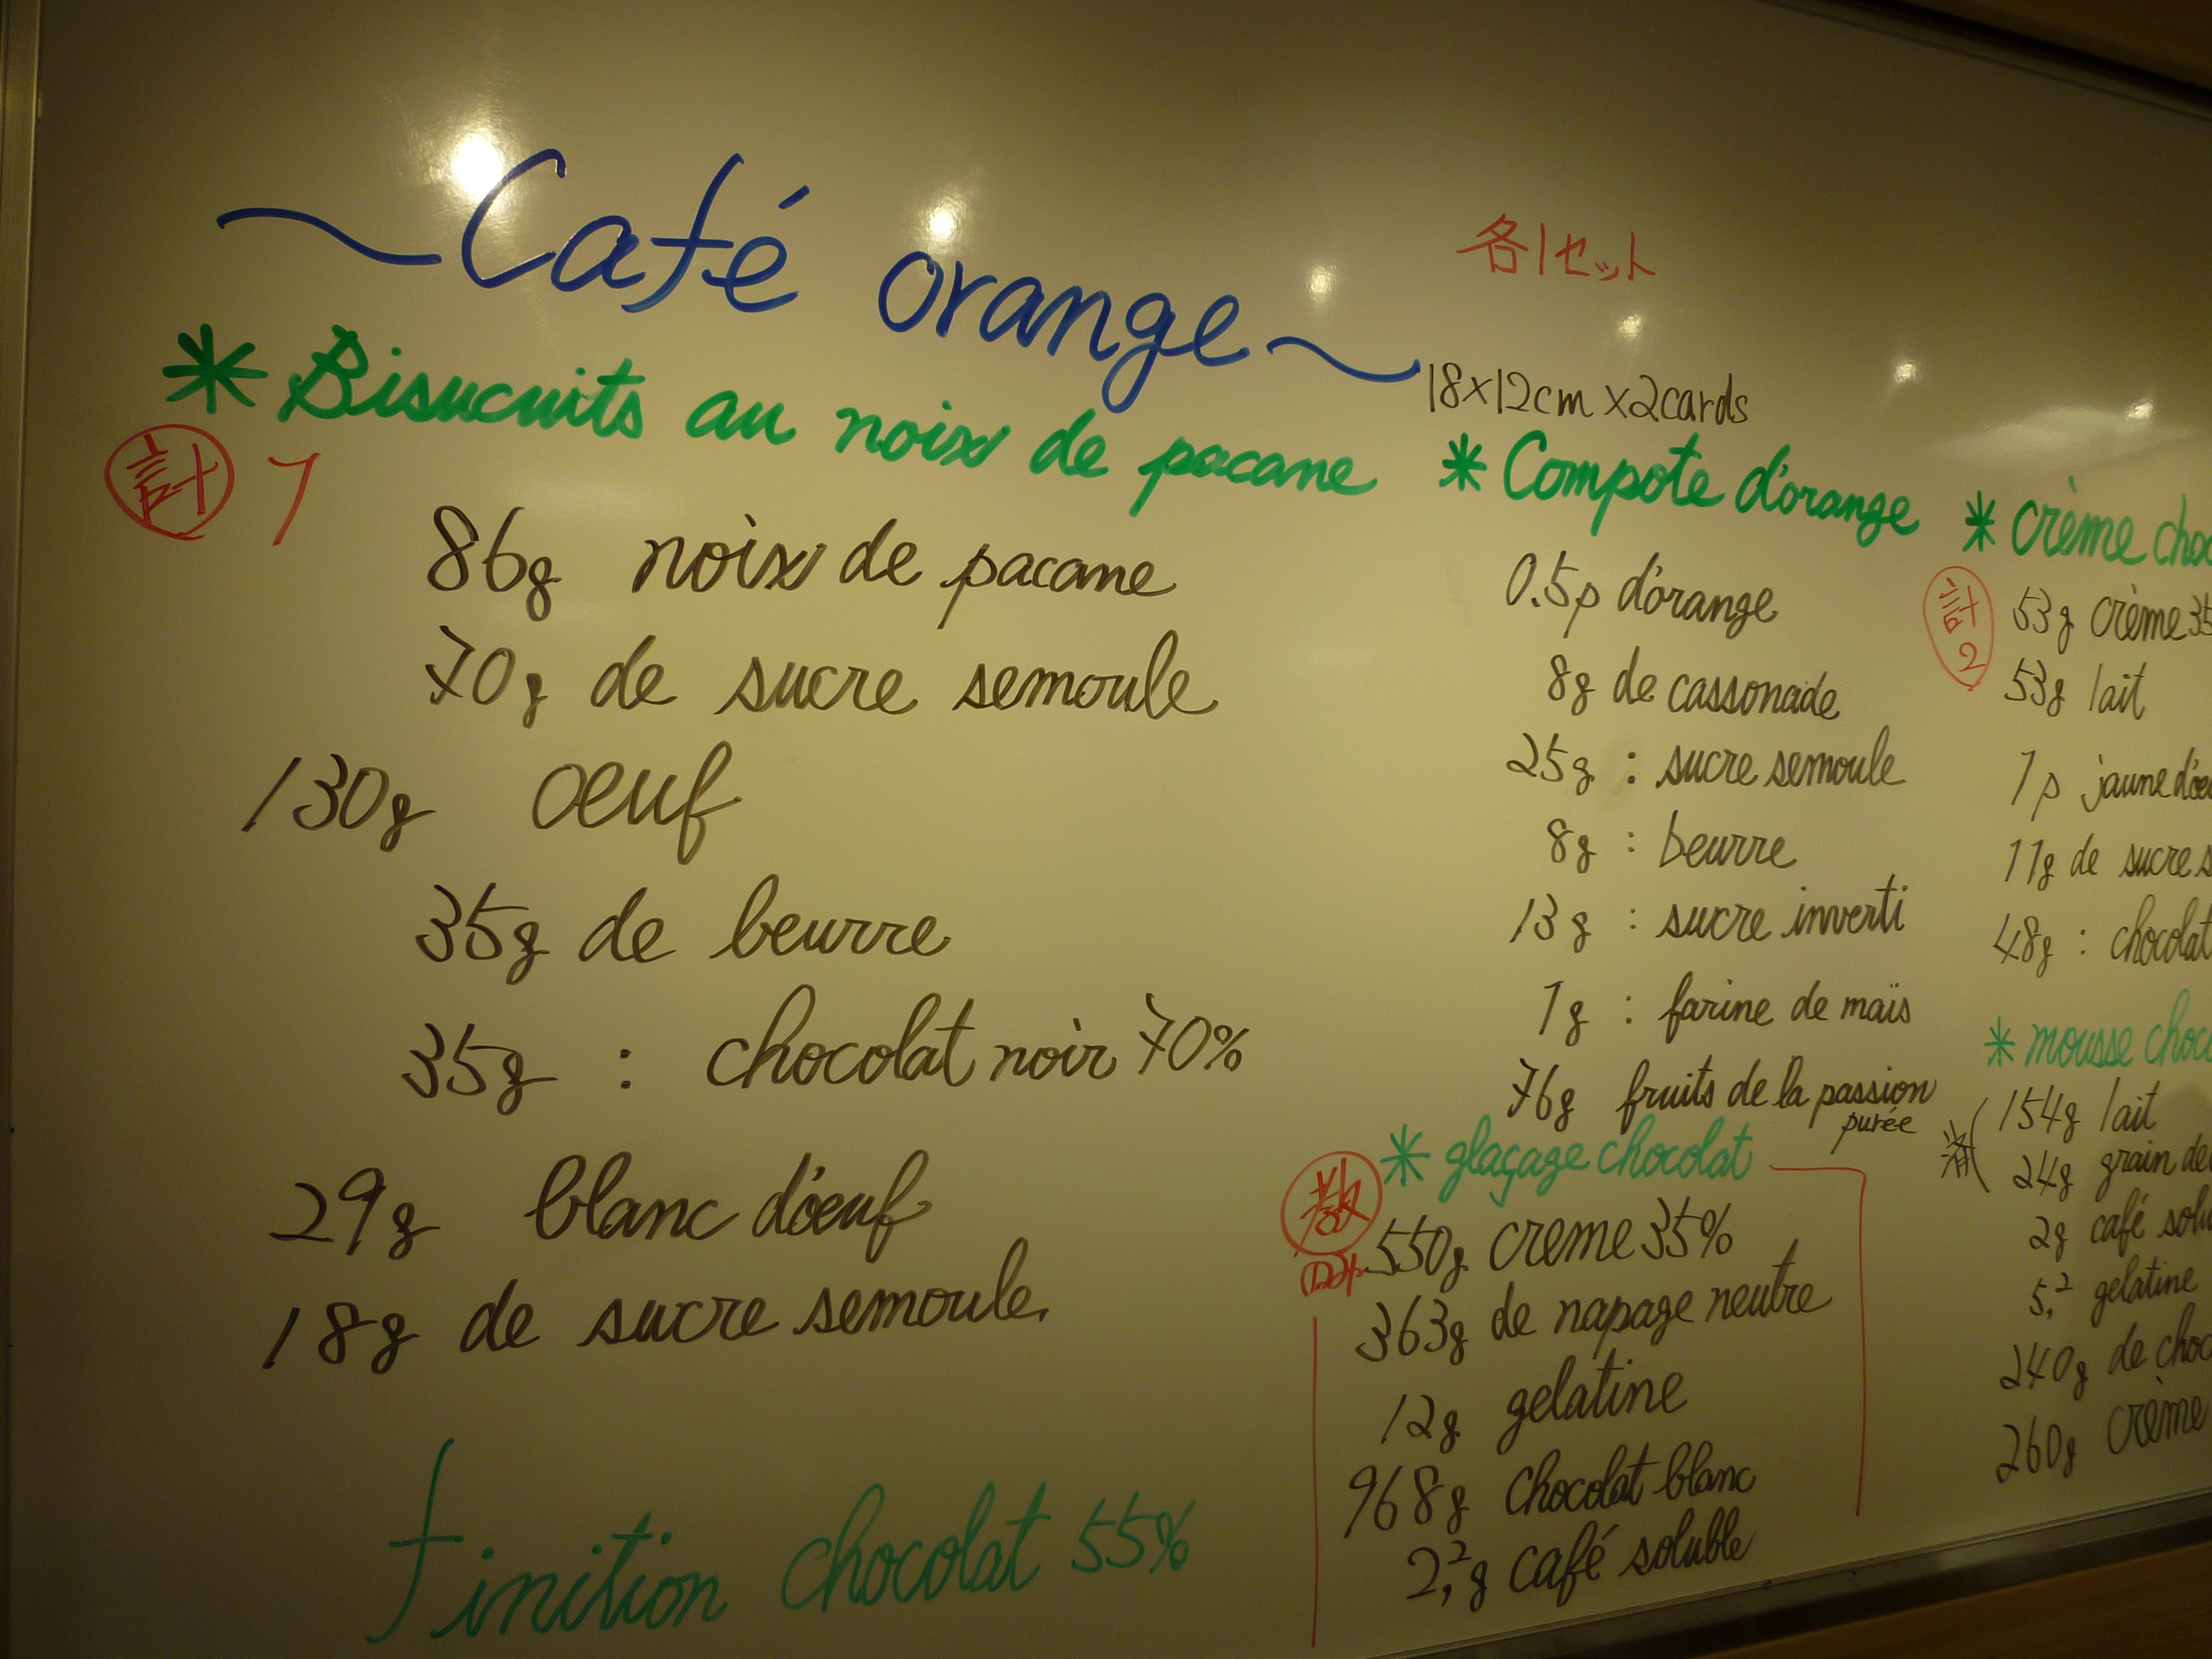 ~Café orange~
各1セット
18×12cm ×2cards
* Bisucuits au noix de pacane
計 1
86g noix de pacane
70g de sucre semoule
130g oeuf
35g de beurre
35g : chocolat noir 70%
29g blanc d'oeuf
18g de sucre semoule.
Finition chocolat 55%
* Compote d'orange
0.5p d'orange
8g de cassonade
25g : sucre semoule
8g : beurre
13g : sucre inverti
1g : farine de maïs
76g fruits de la passion
purée
* glaçage chocolat
550g creme 35%
363g de napage neutre
12g gelatine
968g chocolat blanc
2,2g café soluble
* Crème choc
計
2
53g crème 35
53g lait
1p jaune d'oeu
11g de sucre s
48g : chocolat
* mousse choco
154g lait
24g grain de
2g café solu
5,2 gelatine
240g de choc
260g crème